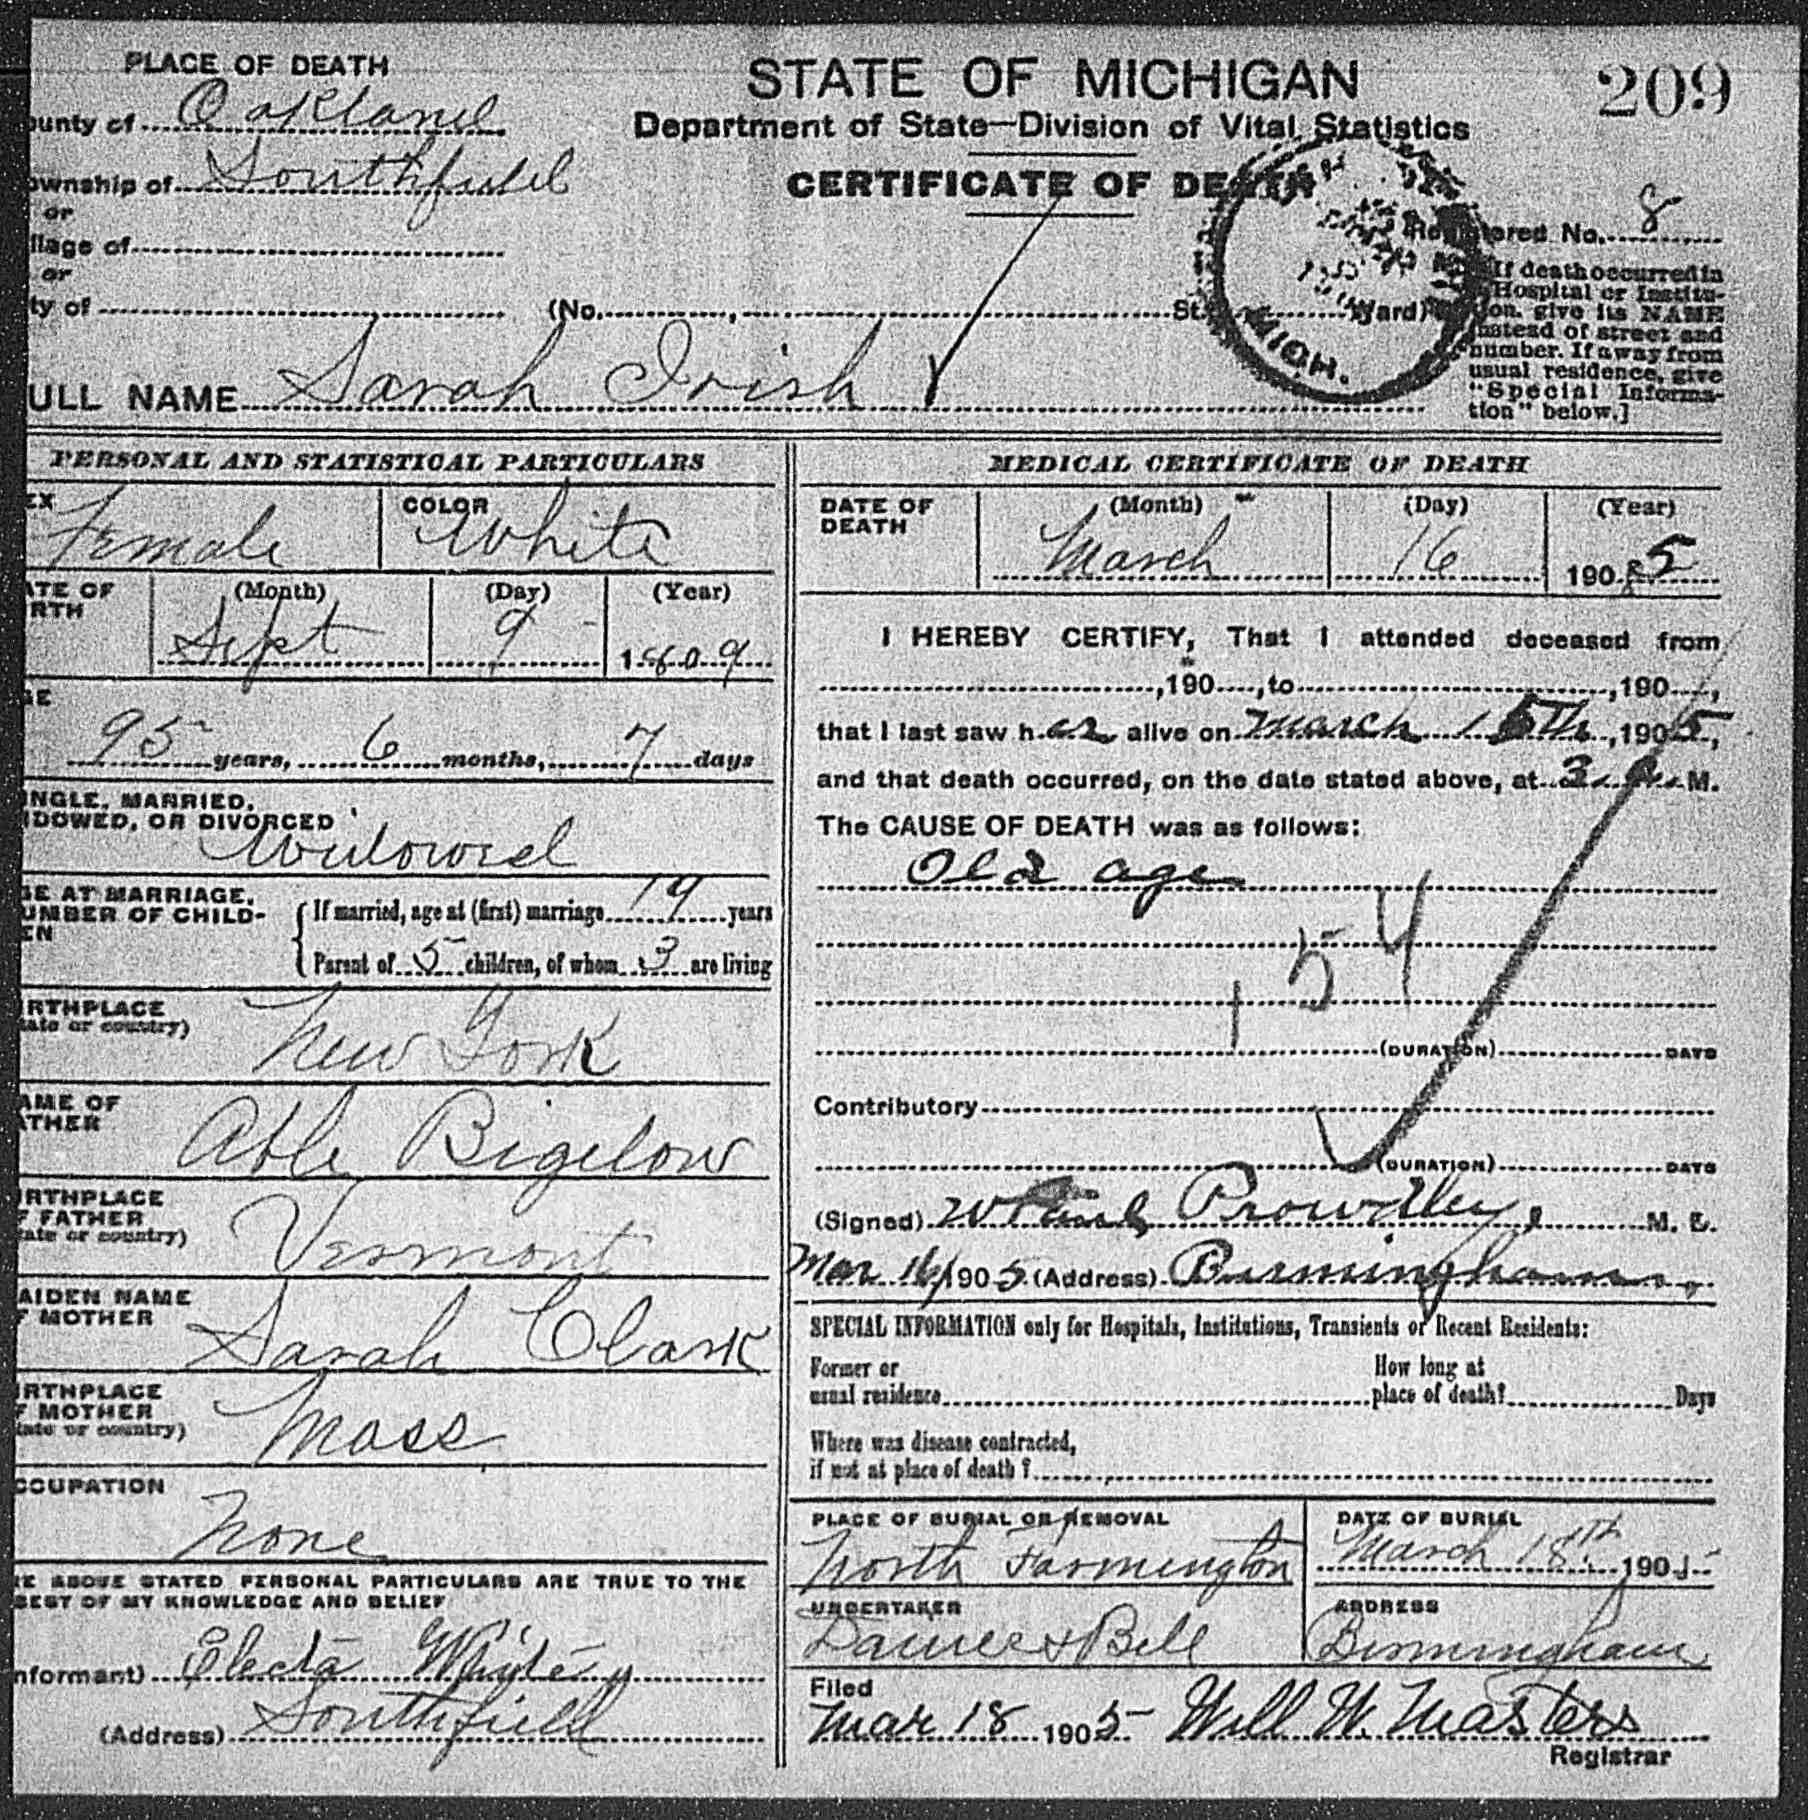 PLACE OF DEATH
STATE OF MICHIGAN
209
ounty of Oakland
Department of State—Division of Vital Statistics
ownship of Southfield
CERTIFICATE OF DEATH
or
Registered No. 8
llage of
or
ty of (No. , St. Ward)
If death occurred in
Hospital or Institu-
on, give its NAME
instead of street and
number. If away from
usual residence, give
"Special Informa-
tion" below.]
MICH.
ULL NAME Sarah Irish
PERSONAL AND STATISTICAL PARTICULARS
EX Female
COLOR White
ATE OF
RTH
(Month) (Day) (Year)
Sept 9 1809
GE
95 years, 6 months, 7 days
NGLE, MARRIED,
IDOWED, OR DIVORCED
Widowed
GE AT MARRIAGE,
UMBER OF CHILD-
EN
If married, age at (first) marriage 19 years
Parent of 5 children, of whom 3 are living
RTHPLACE
tate or country)
New York
AME OF
ATHER
Able Bigelow
RTHPLACE
F FATHER
tate or country)
Vermont
AIDEN NAME
F MOTHER
Sarah Clark
RTHPLACE
F MOTHER
tate or country)
Mass
CCUPATION
None
E ABOVE STATED PERSONAL PARTICULARS ARE TRUE TO THE
BEST OF MY KNOWLEDGE AND BELIEF
nformant) Electa White
(Address) Southfield
MEDICAL CERTIFICATE OF DEATH
DATE OF
DEATH
(Month) (Day) (Year)
March 16 1905
I HEREBY CERTIFY, That I attended deceased from
,190 ,to ,190 ,
that I last saw her alive on March 15th, 1905,
and that death occurred, on the date stated above, at 3 a. M.
The CAUSE OF DEATH was as follows:
Old age
154
(DURATION) DAYS
Contributory
(DURATION) DAYS
(Signed) Prowdley, M. D.
Mar 16 1905 (Address) Birmingham,
SPECIAL INFORMATION only for Hospitals, Institutions, Transients or Recent Residents:
Former or
usual residence
How long at
place of death? Days
Where was disease contracted,
if not at place of death?
PLACE OF BURIAL OR REMOVAL
North Farmington
DATE OF BURIAL
March 18th 1905
UNDERTAKER
& Bell
ADDRESS
Birmingham
Filed
Mar 18 1905 Will W. Masters
Registrar